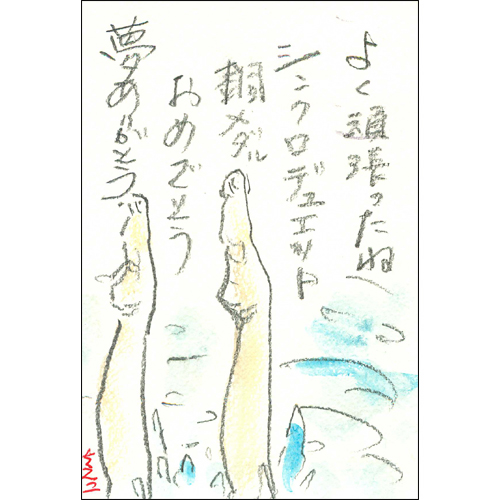 よく頑張ったね
シンクロデュエット
銅メダル
おめでとう
夢ありがとう